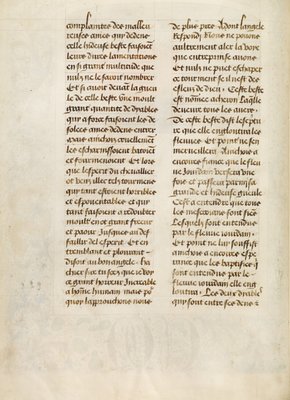 complaintes des malleu
reuses ames que dedens
celle hideuse beste faisoient
leurs dures lamentations
en si grant multitude que
nulz ne les savoit nombrer
Et si avoit devant la gueu
le de celle beste ung moult
grant quantite de dyables
qui a force faisoient les do
lores ames dedens entrer
mais anchois cruellement
les eschernissoient batoient
et tourmentoient Et lors
que lesperit du chevallier
ot veu illec tel tourment
qui tant estoit horrible
et espoventables et qui
tant faisoient a redoubter
moult en ot grant freur
et paour Jusques au def
faillir del esperit Et en
tremblant et plourant
disoit au bon angele . ha
chier sire tu sces que je voy
ce grant horreur Increable
a homme humain mais po
quoy lapprouchons nous
de plus pres Adont langele
respondi Nous ne povons
aultrement aler la voye
que entreprinse avons
et nulz ne puet eschaper
ce tourment se il nest des
esleus de dieu : Ceste beste
est nommee acheron Laqlle
devoure tous les avers .
De ceste beste dist lescrip
ture que elle engloutira les
fleuves . Et point ne sen
mervillera . Anchois a
encores fiance que le fleu
ve Jourdain versera une
fois et passera parmy sa
grande et hideuse gueule
Cest a entendre que tous
les mescreans sont fien
Lesquelz sont entendus
par le fleuve iourdain .
Et point ne lui souffist
anchois a encores espe
rance que les baptisies qui
sont entendus par le
fleuve iourdain elle eng
loutira . Les deux dyables
qui sont entre ses dens et